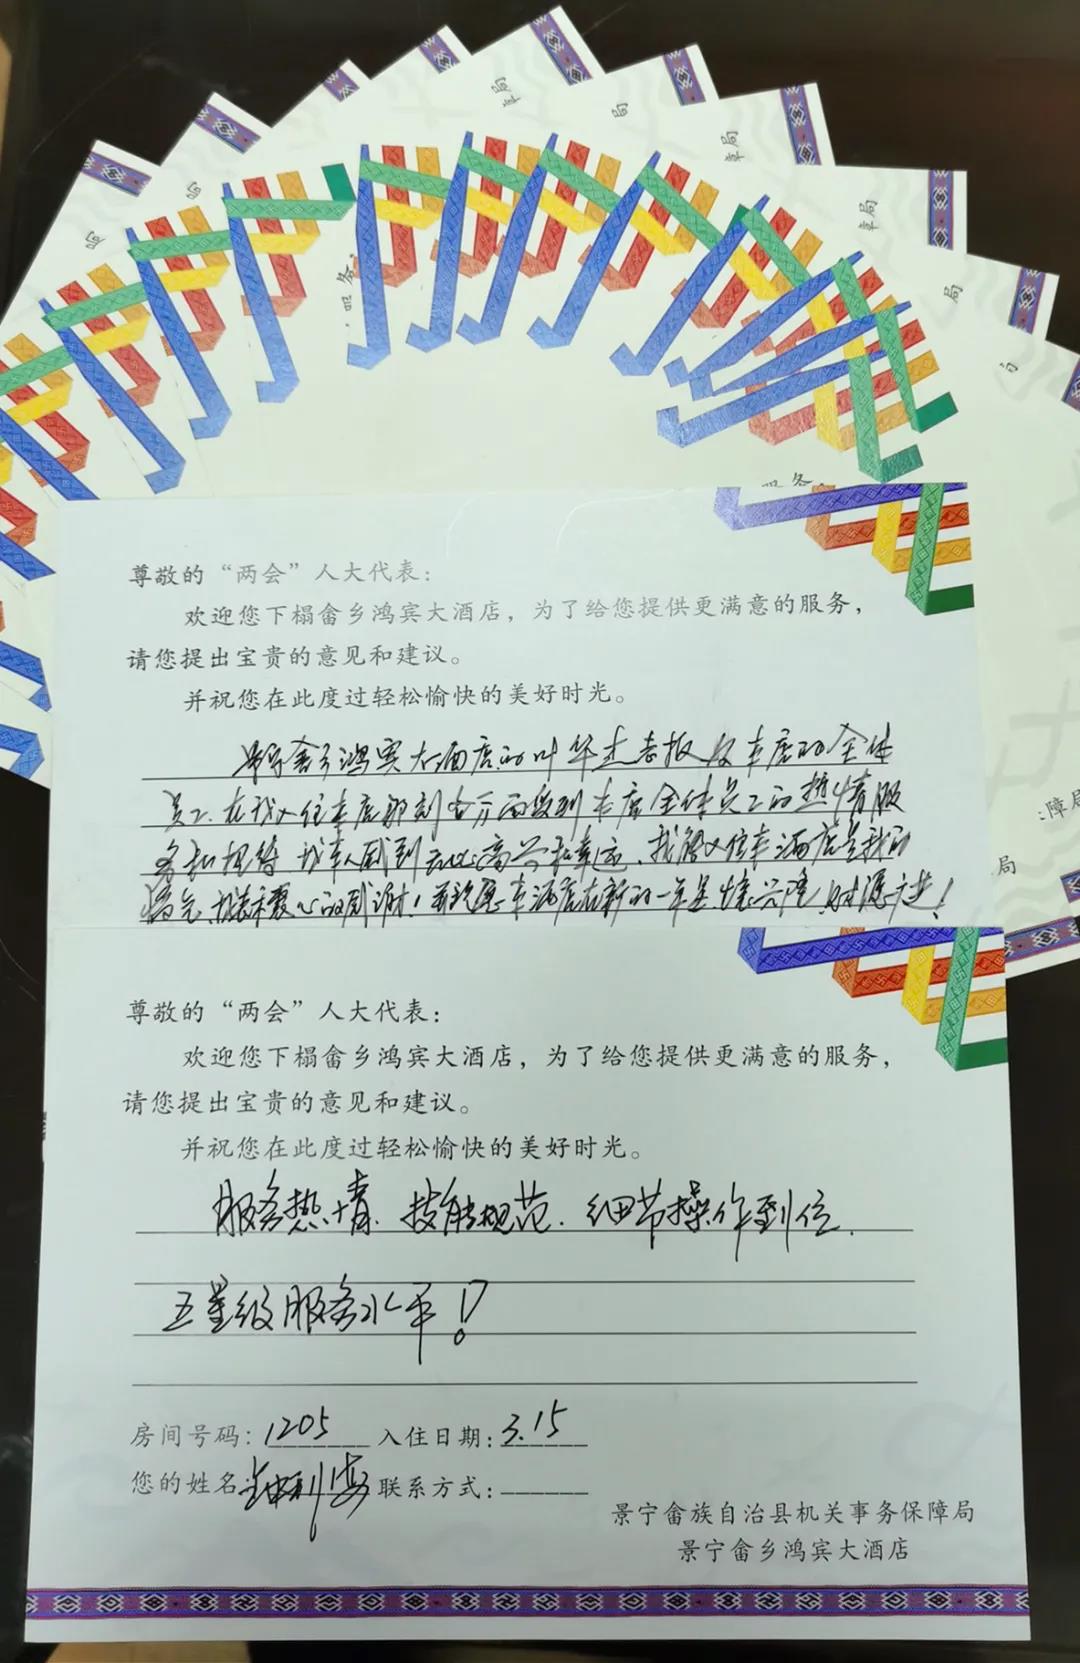 局
章局
服务
局
障局
局
尊敬的“两会”人大代表:
欢迎您下榻畲乡鸿宾大酒店，为了给您提供更满意的服务，
请您提出宝贵的意见和建议。
并祝您在此度过轻松愉快的美好时光。
景宁畲乡鸿宾大酒店的叶华 本店的全体
员工,在我入住本店那刻 本店全体员工的热情服
务和 我本人感到 高兴和 我能入住本酒店是我的
福气 感谢!并祝愿本酒店在新的一年
尊敬的“两会”人大代表:
欢迎您下榻畲乡鸿宾大酒店，为了给您提供更满意的服务，
请您提出宝贵的意见和建议。
并祝您在此度过轻松愉快的美好时光。
服务热情.技能规范.细节操作到位.
五星级服务水平!
房间号码:1205 入住日期:3.15
您的姓名 联系方式:
景宁畲族自治县机关事务保障局
景宁畲乡鸿宾大酒店